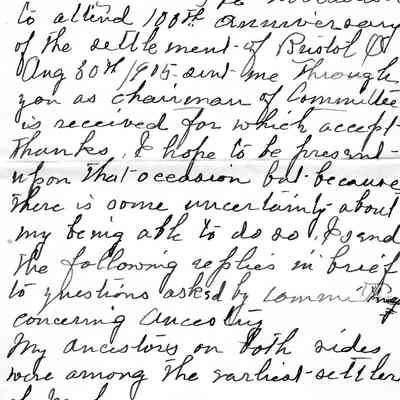 to attend 100th anniversary
of the settlement of Bristol O
Aug 30th/905 sent me through
you as chairman of Committee
is received for which accept
thanks, I hope to be present
upon that occasion but because
there is some uncertainty about
my being able to do so, I send
the following replies in brief
to questions asked by
concerning Ancestry
My ancestors on both sides
were among the earliest settler